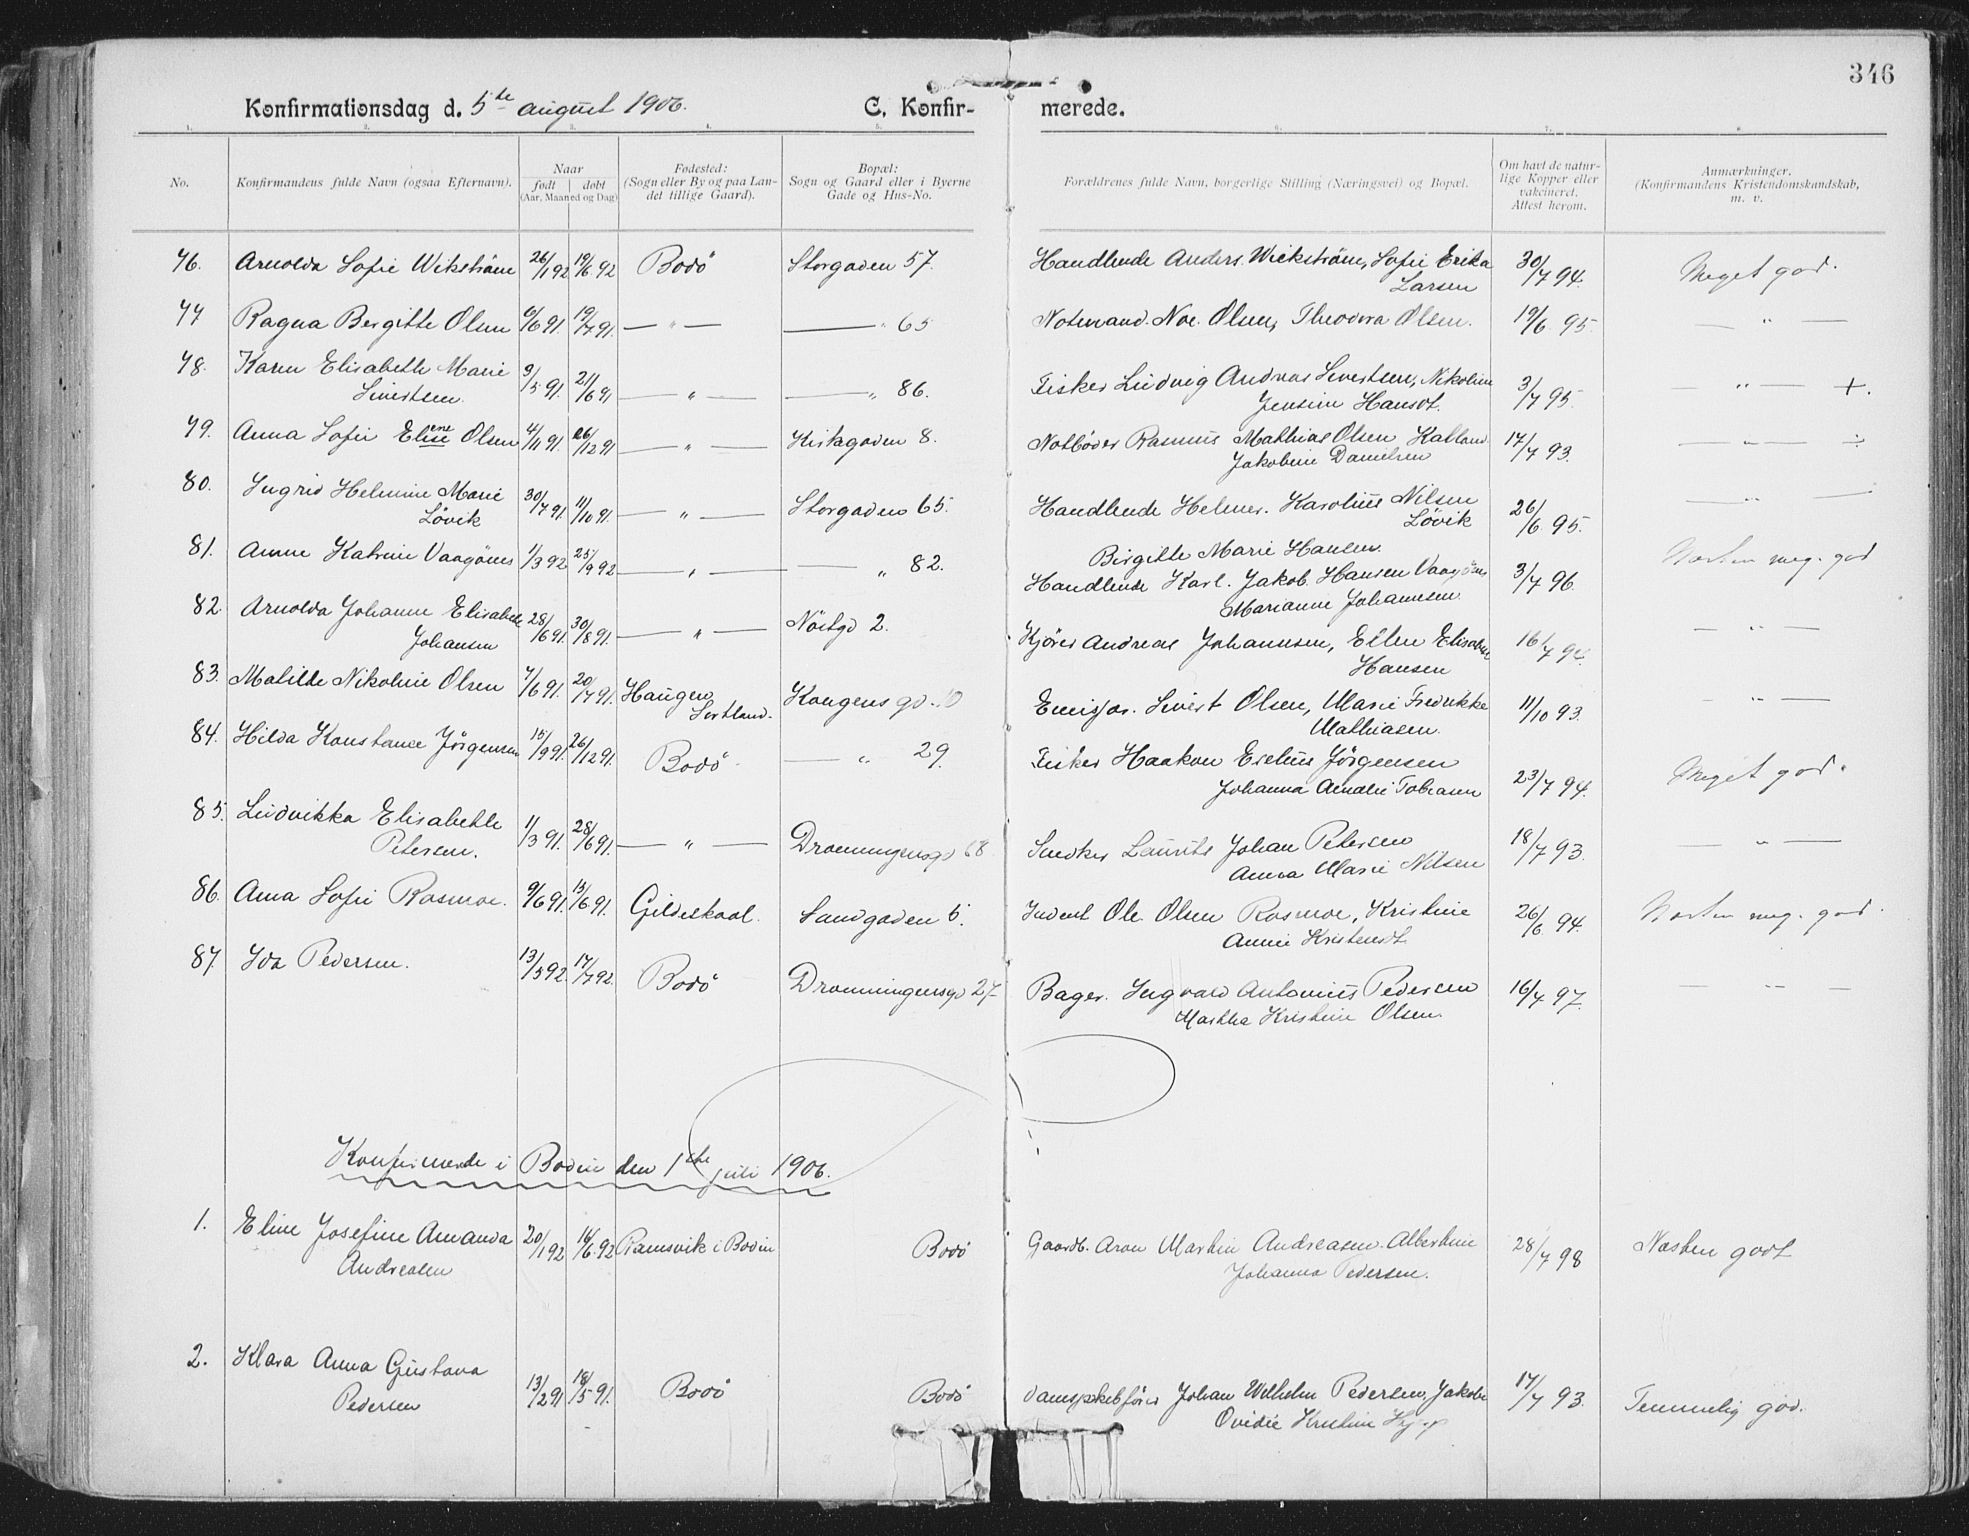 346
Konfirmationsdag d. 5te august 1906. C. Konfirmerede.
1. 2. 3. 4. 5. 6. 7. 8.
No. Konfirmandens fulde Navn (ogsaa Efternavn). Naar født | døbt (Aar, Maaned og Dag) Fødested: (Sogn eller By og paa Landet tillige Gaard). Bopæl: Sogn og Gaard eller i Byerne Gade og Hus-No. Forældrenes fulde Navn, borgerlige Stilling (Næringsvei) og Bopæl. Om havt de naturlige Kopper eller vakcineret. Attest herom. Anmærkninger. (Konfirmandens Kristendomskundskab, m. v.
76. Arnolda Sofie Wikström 26/1 92 19/6 92 Bodö Storgaden 57. Handlende Anders Wickström, Sofie Erika Larsen 30/7 94. Meget god.
77 Ragna Bergitte Olsen 6/6 91 19/7 91. — " — — " 65 Notmand. Noe. Olsen, Theodora Olsen. 19/6 95. — " —
78. Karen Elisabeth Marie Sivertsen. 9/5 91. 21/6 91 — " — — " 86. Fisker Ludvig Andreas Sivertsen, Nikoline Jensine Hansdt. 3/7 95. — " — +.
79. Anna Sofie Eline Olsen 4/11 91. 26/12 91 — " — Kirkegaden 8. Notböder Rasmus Mathias Olsen Kalland. Jakobine Danielsen 17/7 93. — " —
80. Ingrid Helmine Marie Lövik 30/7 91. 11/10 91. — " — Storgaden 65. Handlende Helmer. Karolius Nilsen Lövik Birgitte Marie Hansen. 26/6 95. — " —
81. Anne Katrine Vaagönes 1/3 92 25/9 92 — " — — " 82. Handlende Karl. Jakob. Hansen Vaagönes Marianne Johannesen. 3/7 96. Næsten meg. god
82. Arnolda Johanne Elisabeth Johansen 28/6 91. 30/8 91. — " — Nöstgd 2. Kjörer Andreas Johannesen, Ellen Elisabet Hansen 16/7 94. — " —
83. Matilde Nikoline Olsen 7/6 91. 20/7 91. Haugen, Sortland. Kongensgd. 10 Emisjær. Sivert Olsen, Marie Fredrikke Mathiasen. 11/10 93. — " —
84. Hilda Konstance Jörgensen 15/9 91. 26/12 91. Bodö — " 29. Fisker Haakon Eselius Jörgensen Johanna Amalie Tobiasen 23/7 94. Meget god.
85. Ludvikka Elisabethe Petersen. 1/3 91. 28/6 91. — " — Dronningensgd 68 Snedker Laurits Johan Petersen Anna Marie Nilsen 18/7 93. — " —
86. Anna Sofie Rasmoe. 9/6 91. 13/6 91. Gildeskaal. Sandgaden 5. Inderst Ole Olsen Rosmoe, Kristine Annie Kristensdt. 26/6 94. Næsten meg. god.
87. Ida Pedersen. 13/5 92. 17/7 92. Bodö Dronningensgd 27 Bager. Ingvald Antonius Pedersen Martha Kristine Olsen. 16/7 97. — " —
Konfirmerede i Bodin den 1ste juli 1906.
1. Eline Josefine Amanda Andreasen 20/1 92 16/6 92 Ramsvik i Bodin Bodö Gaardb. Aron Martin Andreasen. Albertine Johanna Pedersen. 28/7 98 Næsten godt
2. Klara Anna Gustava Pedersen 13/2 91 18/5 91. Bodö Bodö Dampskibsförer Johan Wilhelm Pedersen, Jakobi Ovidie Kristine 17/7 93. Temmelig god.